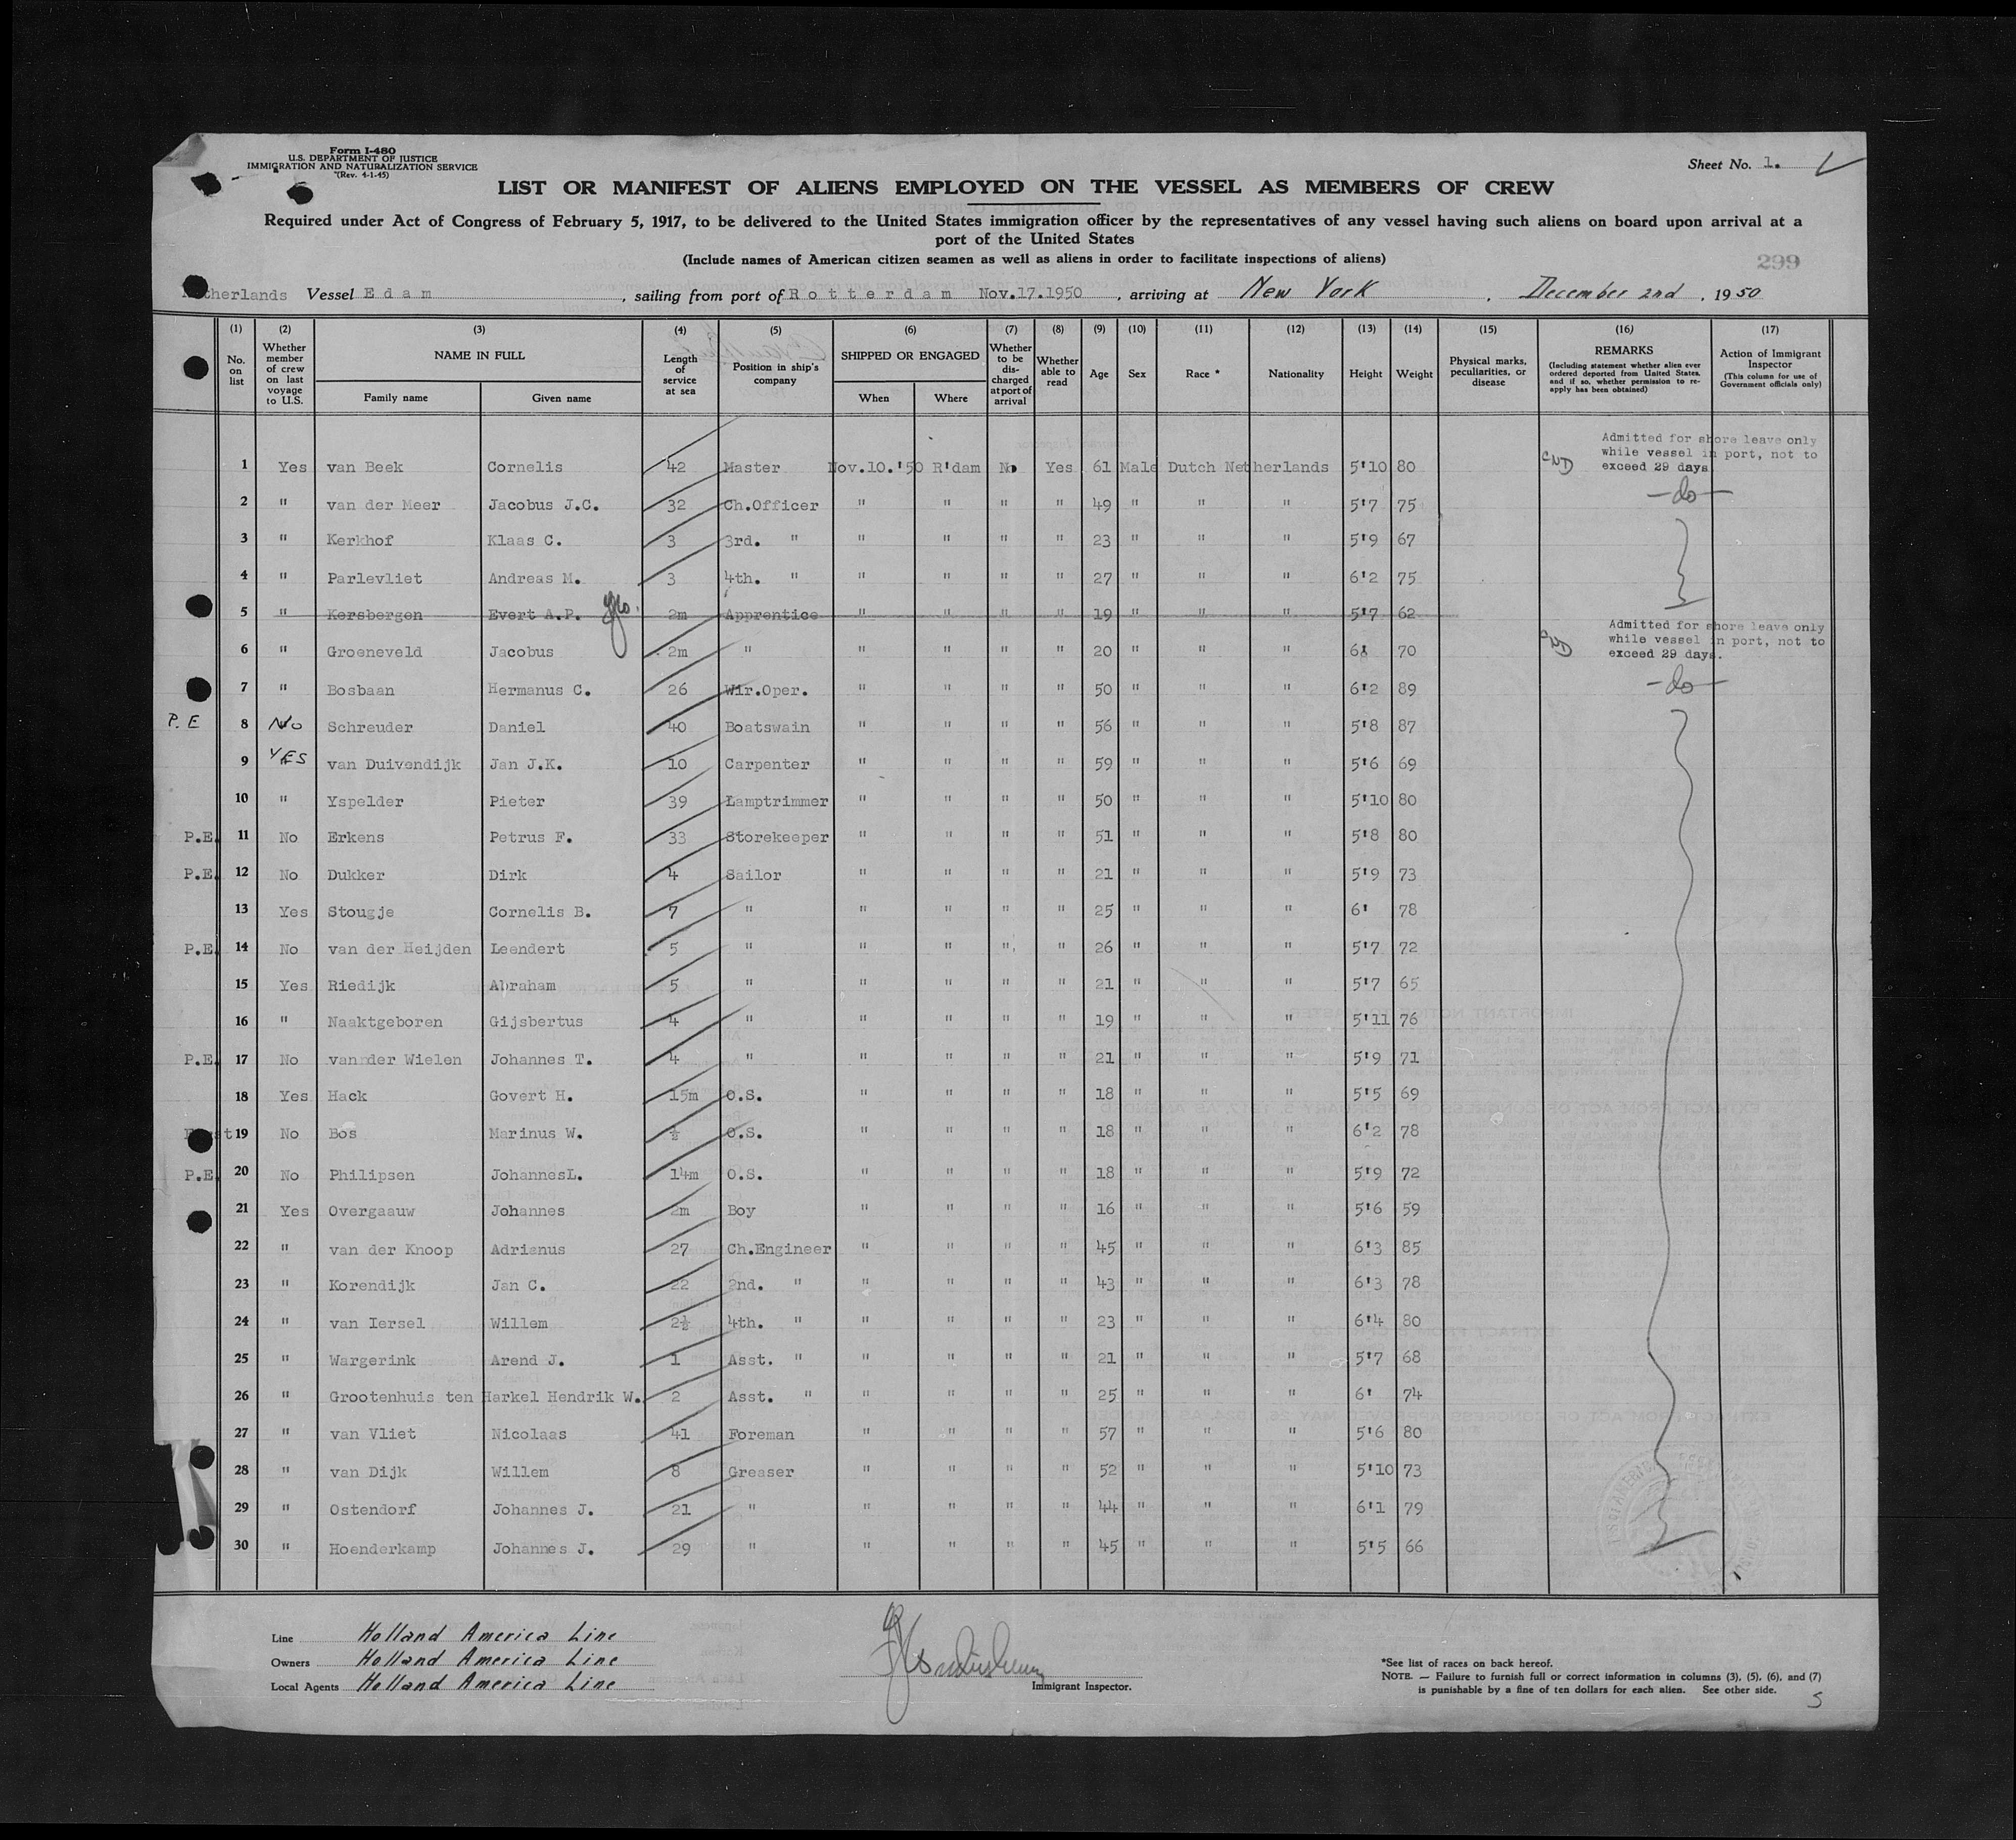 Form I-480
U.S. DEPARTMENT OF JUSTICE
IMMIGRATION AND NATURALIZATION SERVICE
(Rev. 4-1-45)
Sheet No. 1.
LIST OR MANIFEST OF ALIENS EMPLOYED ON THE VESSEL AS MEMBERS OF CREW
Required under Act of Congress of February 5, 1917, to be delivered to the United States immigration officer by the representatives of any vessel having such aliens on board upon arrival at a
port of the United States
(Include names of American citizen seamen as well as aliens in order to facilitate inspections of aliens)
299
therlands Vessel Edam, sailing from port of Rotterdam Nov.17.1950, arriving at New York, December 2nd, 1950
(1) (2) (3) (4) (5) (6) (7) (8) (9) (10) (11) (12) (13) (14) (15) (16) (17)
No. on list
Whether member of crew on last voyage to U.S.
NAME IN FULL
Family name
Given name
Length of service at sea
Position in ship's company
SHIPPED OR ENGAGED
When
Where
Whether to be discharged at port of arrival
Whether able to read
Age
Sex
Race *
Nationality
Height
Weight
Physical marks, peculiarities, or disease
REMARKS
(Including statement whether alien ever ordered deported from United States, and if so, whether permission to re-apply has been obtained)
Action of Immigrant Inspector
(This column for use of Government officials only)
1 Yes van Beek Cornelis 42 Master Nov.10.'50 R'dam No Yes 61 Male Dutch Netherlands 5'10 80 Admitted for shore leave only while vessel in port, not to exceed 29 days
2 " van der Meer Jacobus J.C. 32 Ch.Officer " " " " 49 " " " 5'7 75 -do-
3 " Kerkhof Klaas C. 3 3rd. " " " " " 23 " " " 5'9 67
4 " Parlevliet Andreas M. 3 4th. " " " " " 27 " " " 6'2 75
5 " Kersbergen Evert A.P. 2m Apprentice " " " " 19 " " " 5'7 62
6 " Groeneveld Jacobus 2m " " " " " 20 " " " 6' 70 Admitted for shore leave only while vessel in port, not to exceed 29 days.
7 " Bosbaan Hermanus C. 26 Wir.Oper. " " " " 50 " " " 6'2 89 -do-
P.E 8 No Schreuder Daniel 40 Boatswain " " " " 56 " " " 5'8 87
9 YES van Duivendijk Jan J.K. 10 Carpenter " " " " 59 " " " 5'6 69
10 " Yspelder Pieter 39 Lamptrimmer " " " " 50 " " " 5'10 80
P.E. 11 No Erkens Petrus F. 33 Storekeeper " " " " 51 " " " 5'8 80
P.E. 12 No Dukker Dirk 4 Sailor " " " " 21 " " " 5'9 73
13 Yes Stougje Cornelis B. 7 " " " " " 25 " " " 6' 78
P.E. 14 No van der Heijden Leendert 5 " " " " " 26 " " " 5'7 72
15 Yes Riedijk Abraham 5 " " " " " 21 " " " 5'7 65
16 " Naaktgeboren Gijsbertus 4 " " " " " 19 " " " 5'11 76
P.E. 17 No van der Wielen Johannes T. 4 " " " " " 21 " " " 5'9 71
18 Yes Hack Govert H. 15m O.S. " " " " 18 " " " 5'5 69
19 No Bos Marinus W. ½ O.S. " " " " 18 " " " 6'2 78
P.E. 20 No Philipsen JohannesL. 14m O.S. " " " " 18 " " " 5'9 72
21 Yes Overgaauw Johannes 2m Boy " " " " 16 " " " 5'6 59
22 " van der Knoop Adrianus 27 Ch.Engineer " " " " 45 " " " 6'3 85
23 " Korendijk Jan C. 22 2nd. " " " " " 43 " " " 6'3 78
24 " van Iersel Willem 2½ 4th. " " " " " 23 " " " 6'4 80
25 " Wargerink Arend J. 1 Asst. " " " " " 21 " " " 5'7 68
26 " Grootenhuis ten Harkel Hendrik W. 2 Asst. " " " " " 25 " " " 6' 74
27 " van Vliet Nicolaas 41 Foreman " " " " 57 " " " 5'6 80
28 " van Dijk Willem 8 Greaser " " " " 52 " " " 5'10 73
29 " Ostendorf Johannes J. 21 " " " " " 44 " " " 6'1 79
30 " Hoenderkamp Johannes J. 29 " " " " " 45 " " " 5'5 66
Line Holland America Line
Owners Holland America Line
Local Agents Holland America Line
Immigrant Inspector.
*See list of races on back hereof.
NOTE. — Failure to furnish full or correct information in columns (3), (5), (6), and (7)
is punishable by a fine of ten dollars for each alien. See other side.